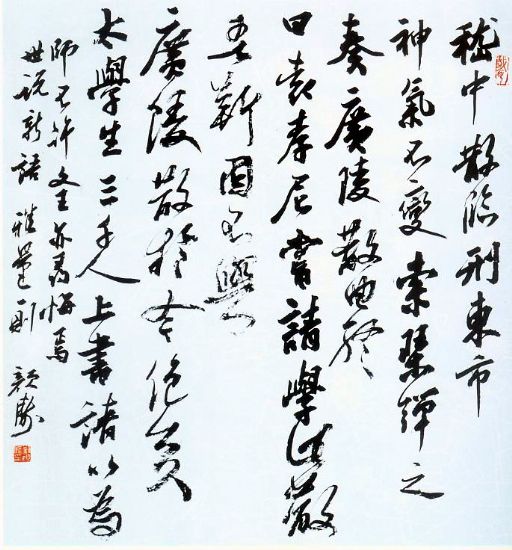 嵇中散臨刑東市
神氣不變索琴彈之
奏廣陵散曲終
曰袁孝尼嘗請學此散
吾靳固不與
廣陵散於今絕矣
太學生三千人上書請以為
師不許文王亦尋悔焉
世說新語 雅量一則 顏